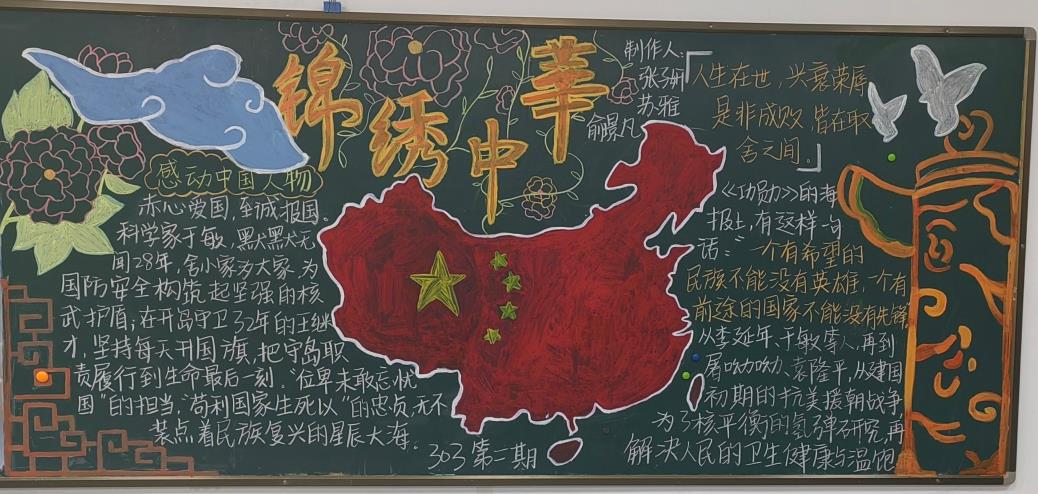 锦绣中華
制作人:
苏雅
感动中国人物
赤心爱国,至诚报国。
科学家于敏,默默无
闻28年,舍小家为大家,为
国防安全构筑起坚强的核
武护盾;在开岛守卫32年的王继
才,坚持每天升国旗,把守岛职
责履行到生命最后一刻。“位卑未敢忘忧
国”的担当,“苟利国家生死以”的忠贞,无不
装点着民族复兴的星辰大海。
303第二期
「人生在世,兴衰荣辱
是非成败,皆在取
舍之间。」
《功勋》的海
报上,有这样一句
话:“一个有希望的
民族不能没有英雄,一个有
前途的国家不能没有先锋
从李延年、于敏等人,再到
屠呦呦、袁隆平,从建国
初期的抗美援朝战争,
为了核平衡的氢弹研究,再
解决人民的卫生健康与温饱